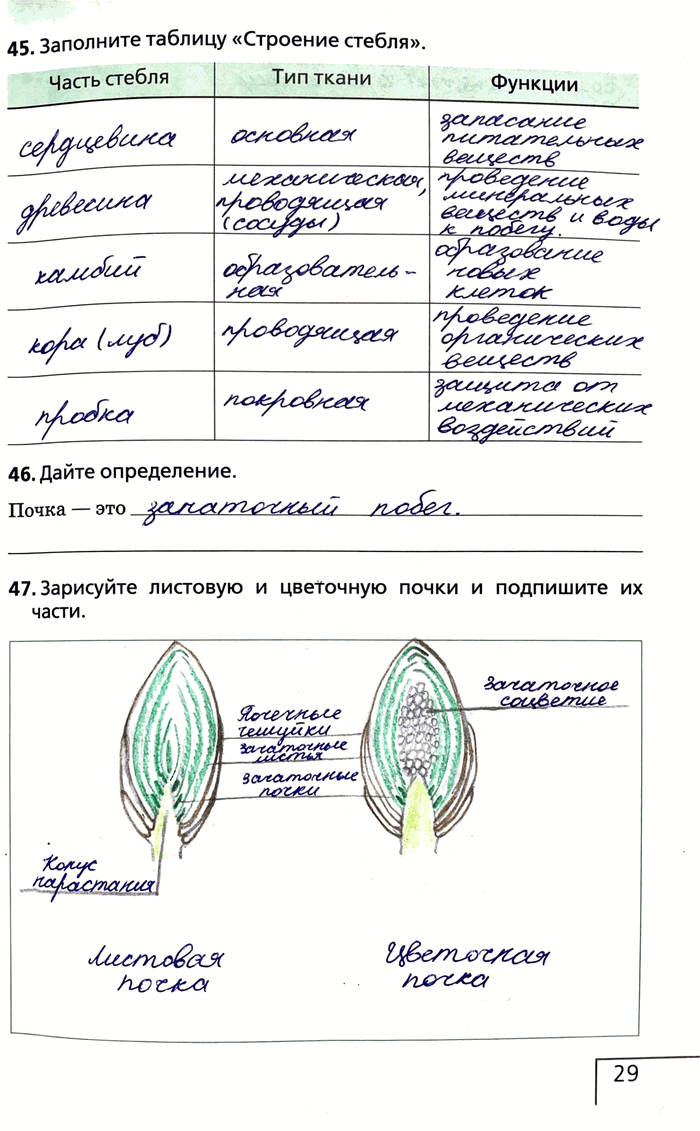 45. Заполните таблицу «Строение стебля».
Часть стебля Тип ткани Функции
сердцевина основная запасание питательных веществ
древесина механическая, проводящая (сосуды) проведение минеральных веществ и воды к побегу.
камбий образователь-ная образование новых клеток
кора (луб) проводящая проведение органических веществ
пробка покровная защита от механических воздействий
46. Дайте определение.
Почка — это зачаточный побег.
47. Зарисуйте листовую и цветочную почки и подпишите их
части.
Зачаточное
соцветие
Почечные
чешуйки
зачаточные
листья
зачаточные
почки
Конус
нарастания
Листовая
почка
Цветочная
почка
29